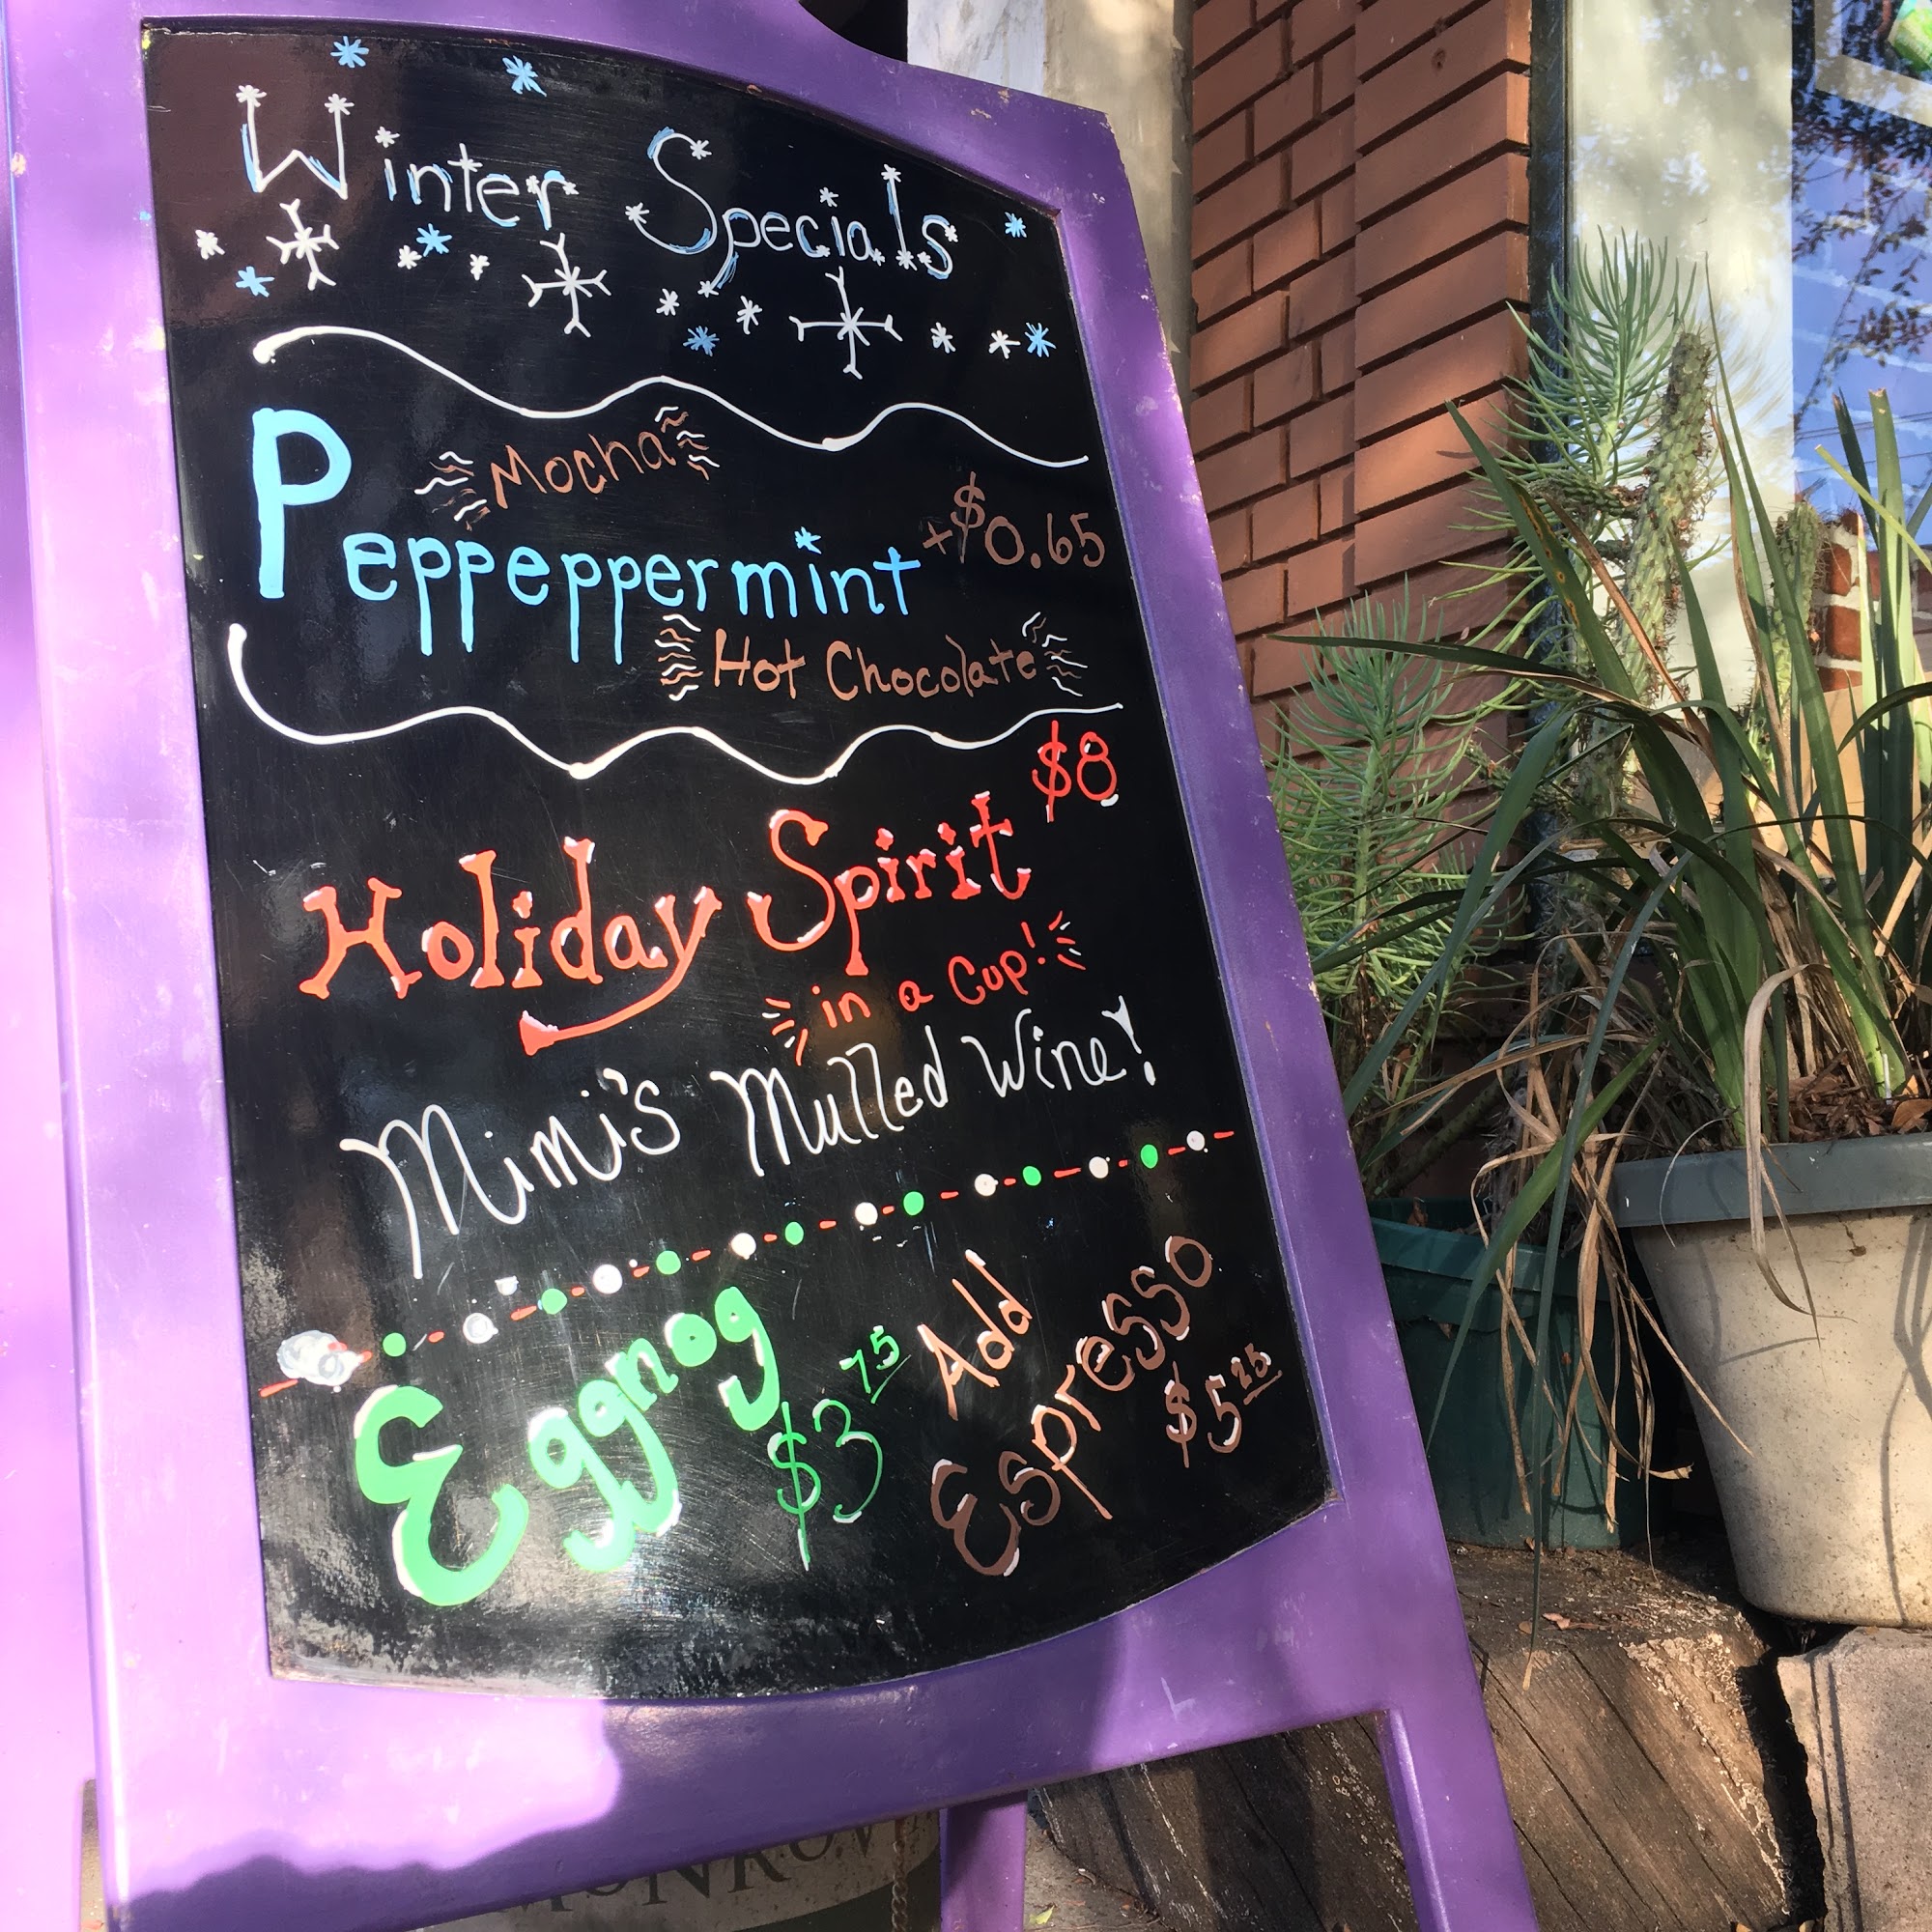 Winter Specials
Mocha
Peppeppermint +$0.65
Hot Chocolate
$8
Holiday Spirit
in a Cup!
Mimi's Mulled Wine!
Eggnog $3 75
Add Espresso $5 25